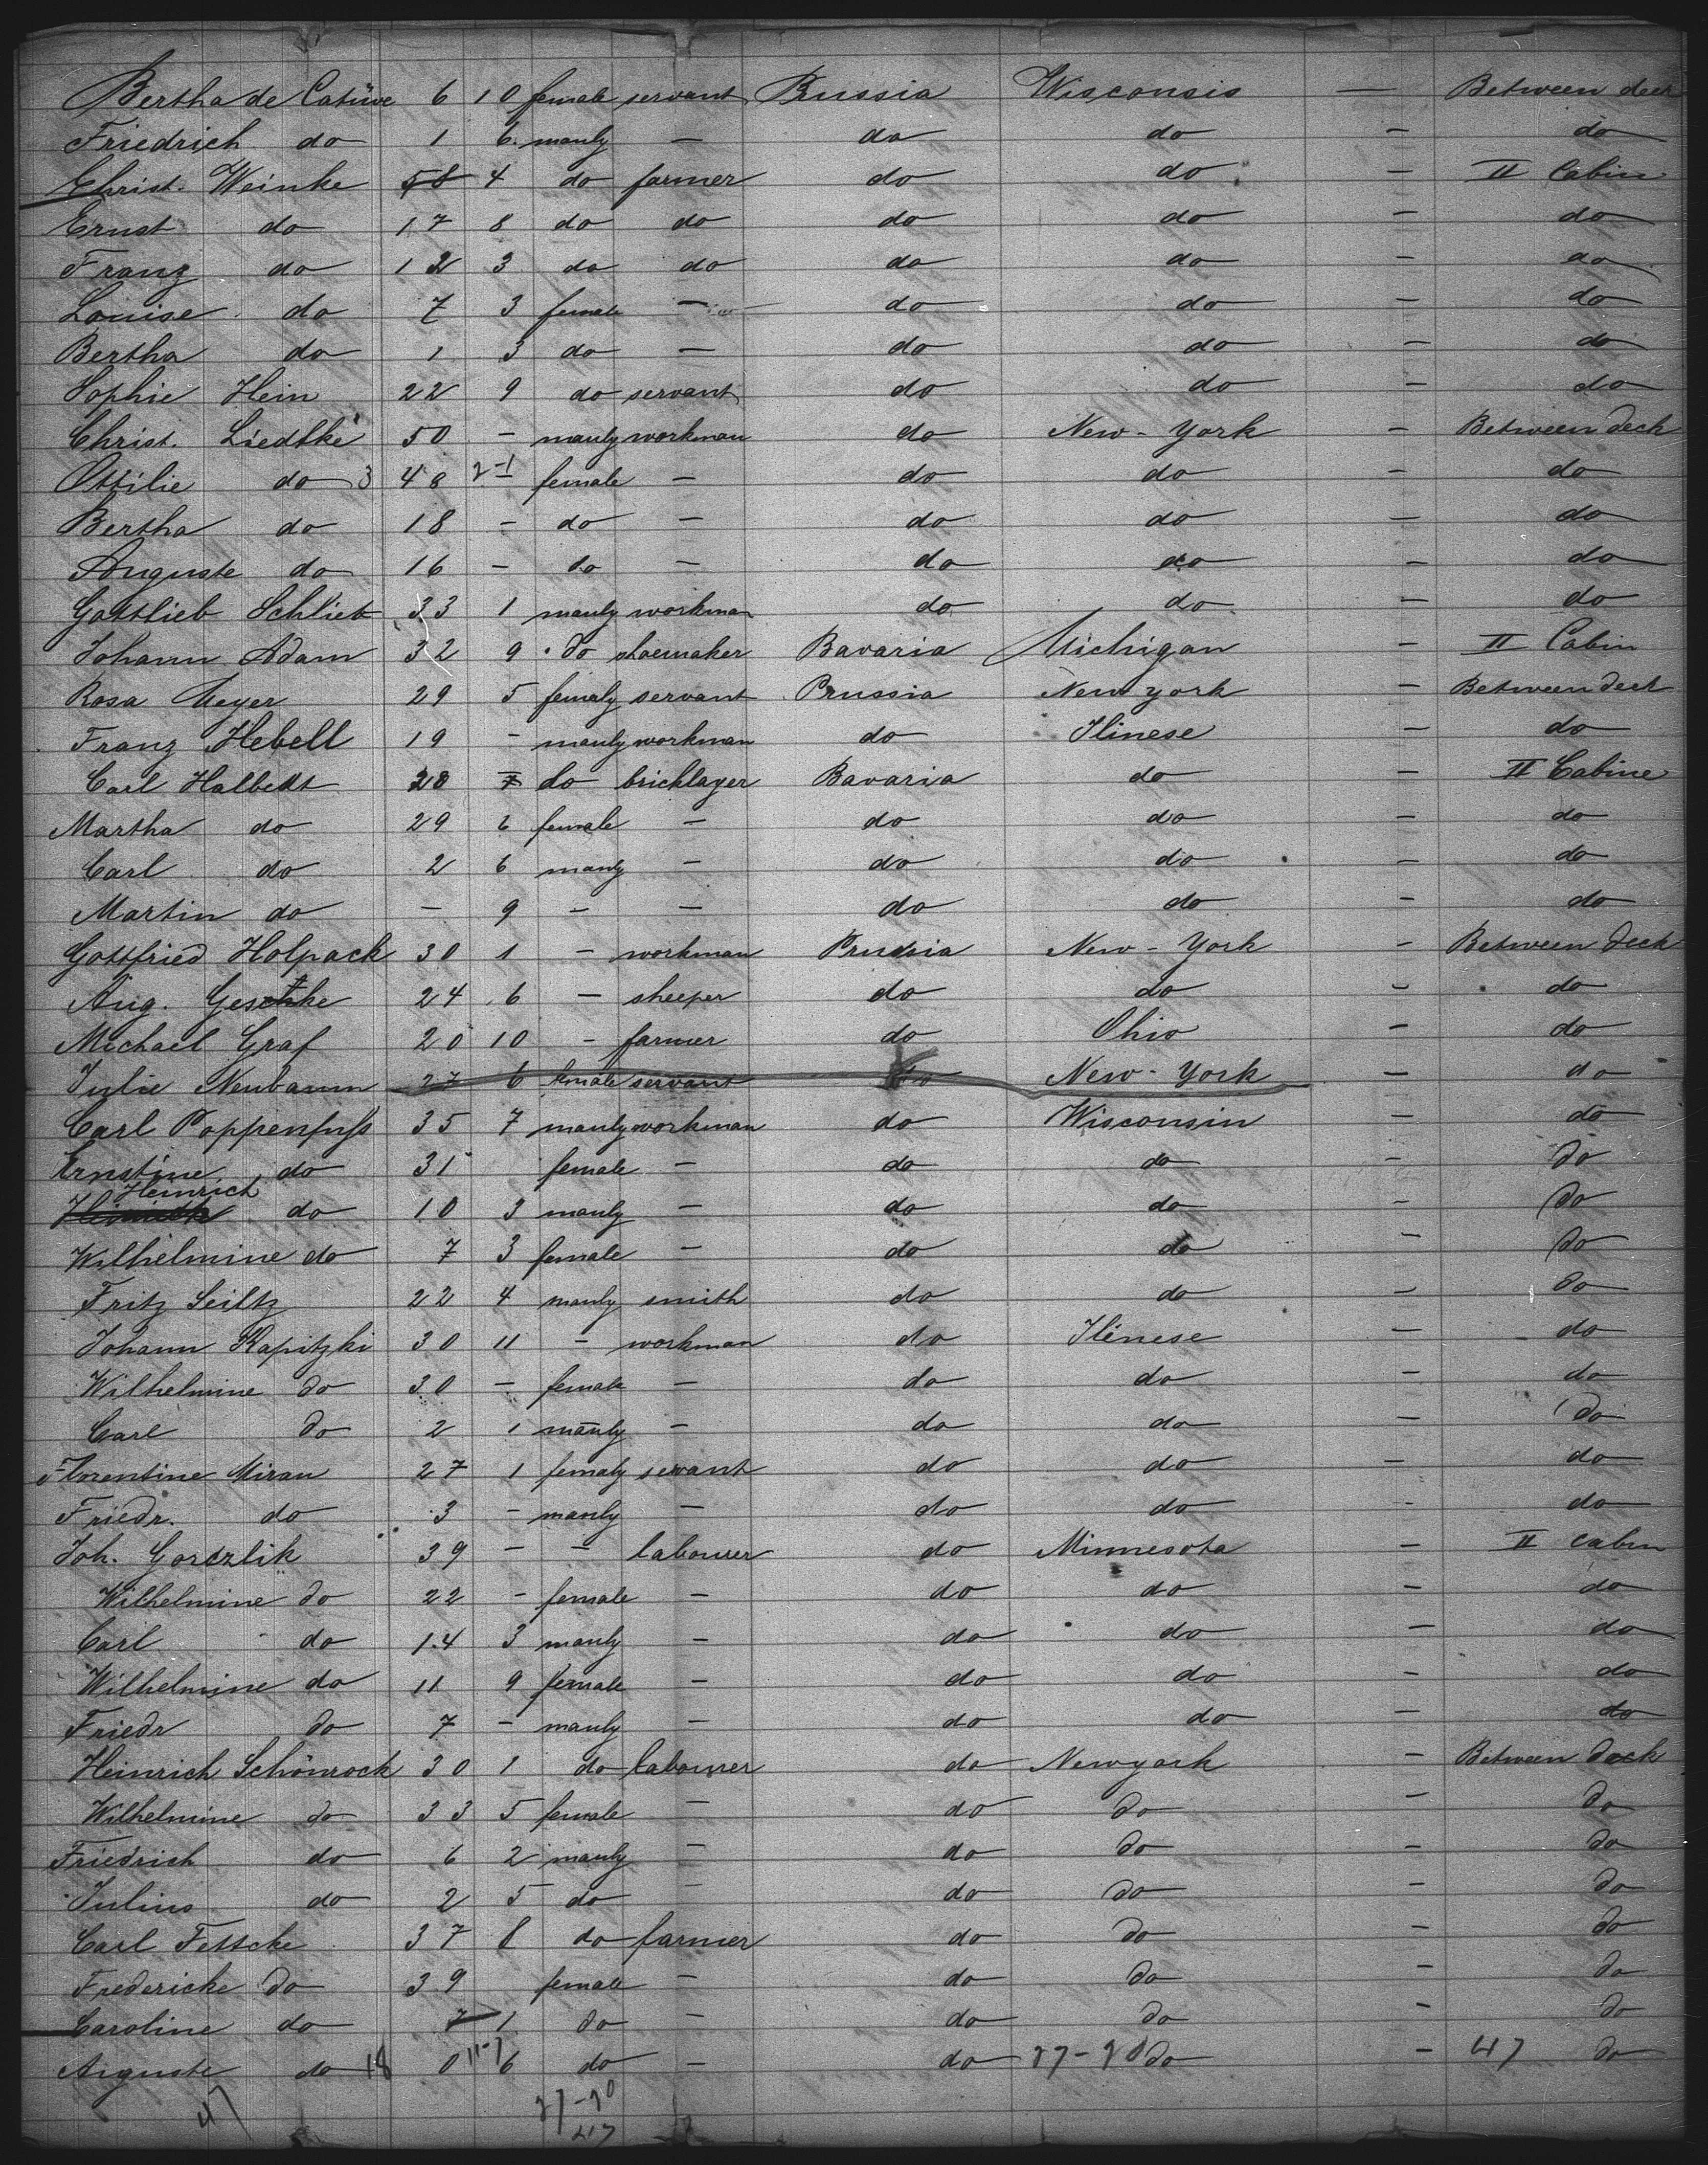 Bertha de Catüve 6 10 female servant Prussia Wisconsis — Between deck
Friedrich do 1 6 manly — do do — do
Christ. Weinke 58 4 do farmer do do — II Cabin
Ernst do 17 8 do do do do — do
Franz do 12 3 do do do do — do
Louise do 7 3 female — do do — do
Bertha do 1 3 do — do do — do
Sophie Hein 22 9 do servant do do — do
Christ. Liedtke 50 — manly workman do New-York — Between deck
Ottilie do 3 48 2-1 female — do do — do
Bertha do 18 — do — do do — do
Auguste do 16 — do — do do — do
Gottlieb Schlieb 33 1 manly workman do do — do
Johann Adam 32 9 do shoemaker Bavaria Michigan — II Cabin
Rosa Meyer 29 5 femaly servant Prussia New york — Between deck
Franz Hebell 19 — manly workman do Ilinese — do
Carl Halbedt 28 7 do bricklayer Bavaria do — II Cabine
Martha do 29 6 female — do do — do
Carl do 2 6 manly — do do — do
Martin do — 9 — — do do — do
Gottfried Holpack 30 1 — workman Prussia New-York — Between deck
Aug. Geschke 24 6 — sheeper do do — do
Michael Graf 20 10 — farmer do Ohio — do
Julie Neubaum 27 6 female servant do New-York — do
Carl Poppenfuß 35 7 manly workman do Wisconsin — do
Ernstine do 31 female — do do — do
Heinrich do 10 3 manly — do do — do
Wilhelmine do 7 3 female — do do — do
Fritz Seiltz 22 4 manly smith do do — do
Johann Kapitzki 30 11 — workman do Ilinese — do
Wilhelmine do 30 — female — do do — do
Carl do 2 1 manly — do do — do
Florentine Miran 27 1 femaly servant do do — do
Friedr. do 3 — manly — do do — do
Joh. Gorczlik 39 — — labourer do Minnesota — II cabin
Wilhelmine do 22 — female — do do — do
Carl do 14 3 manly — do do — do
Wilhelmine do 11 9 female — do do — do
Friedr do 7 — manly — do do — do
Heinrich Schönrock 30 1 do labourer do Newyork — Between deck
Wilhelmine do 33 5 female — do do — do
Friedrich do 6 2 manly — do do — do
Julius do 2 5 do — do do — do
Carl Fettcke 37 8 do farmer do do — do
Fredericke do 39 female — do do — do
Caroline do 7 1 do — do do — do
Auguste do 18 0 11-7 6 do — do 27-20 do — 47 do
47 27-20
47